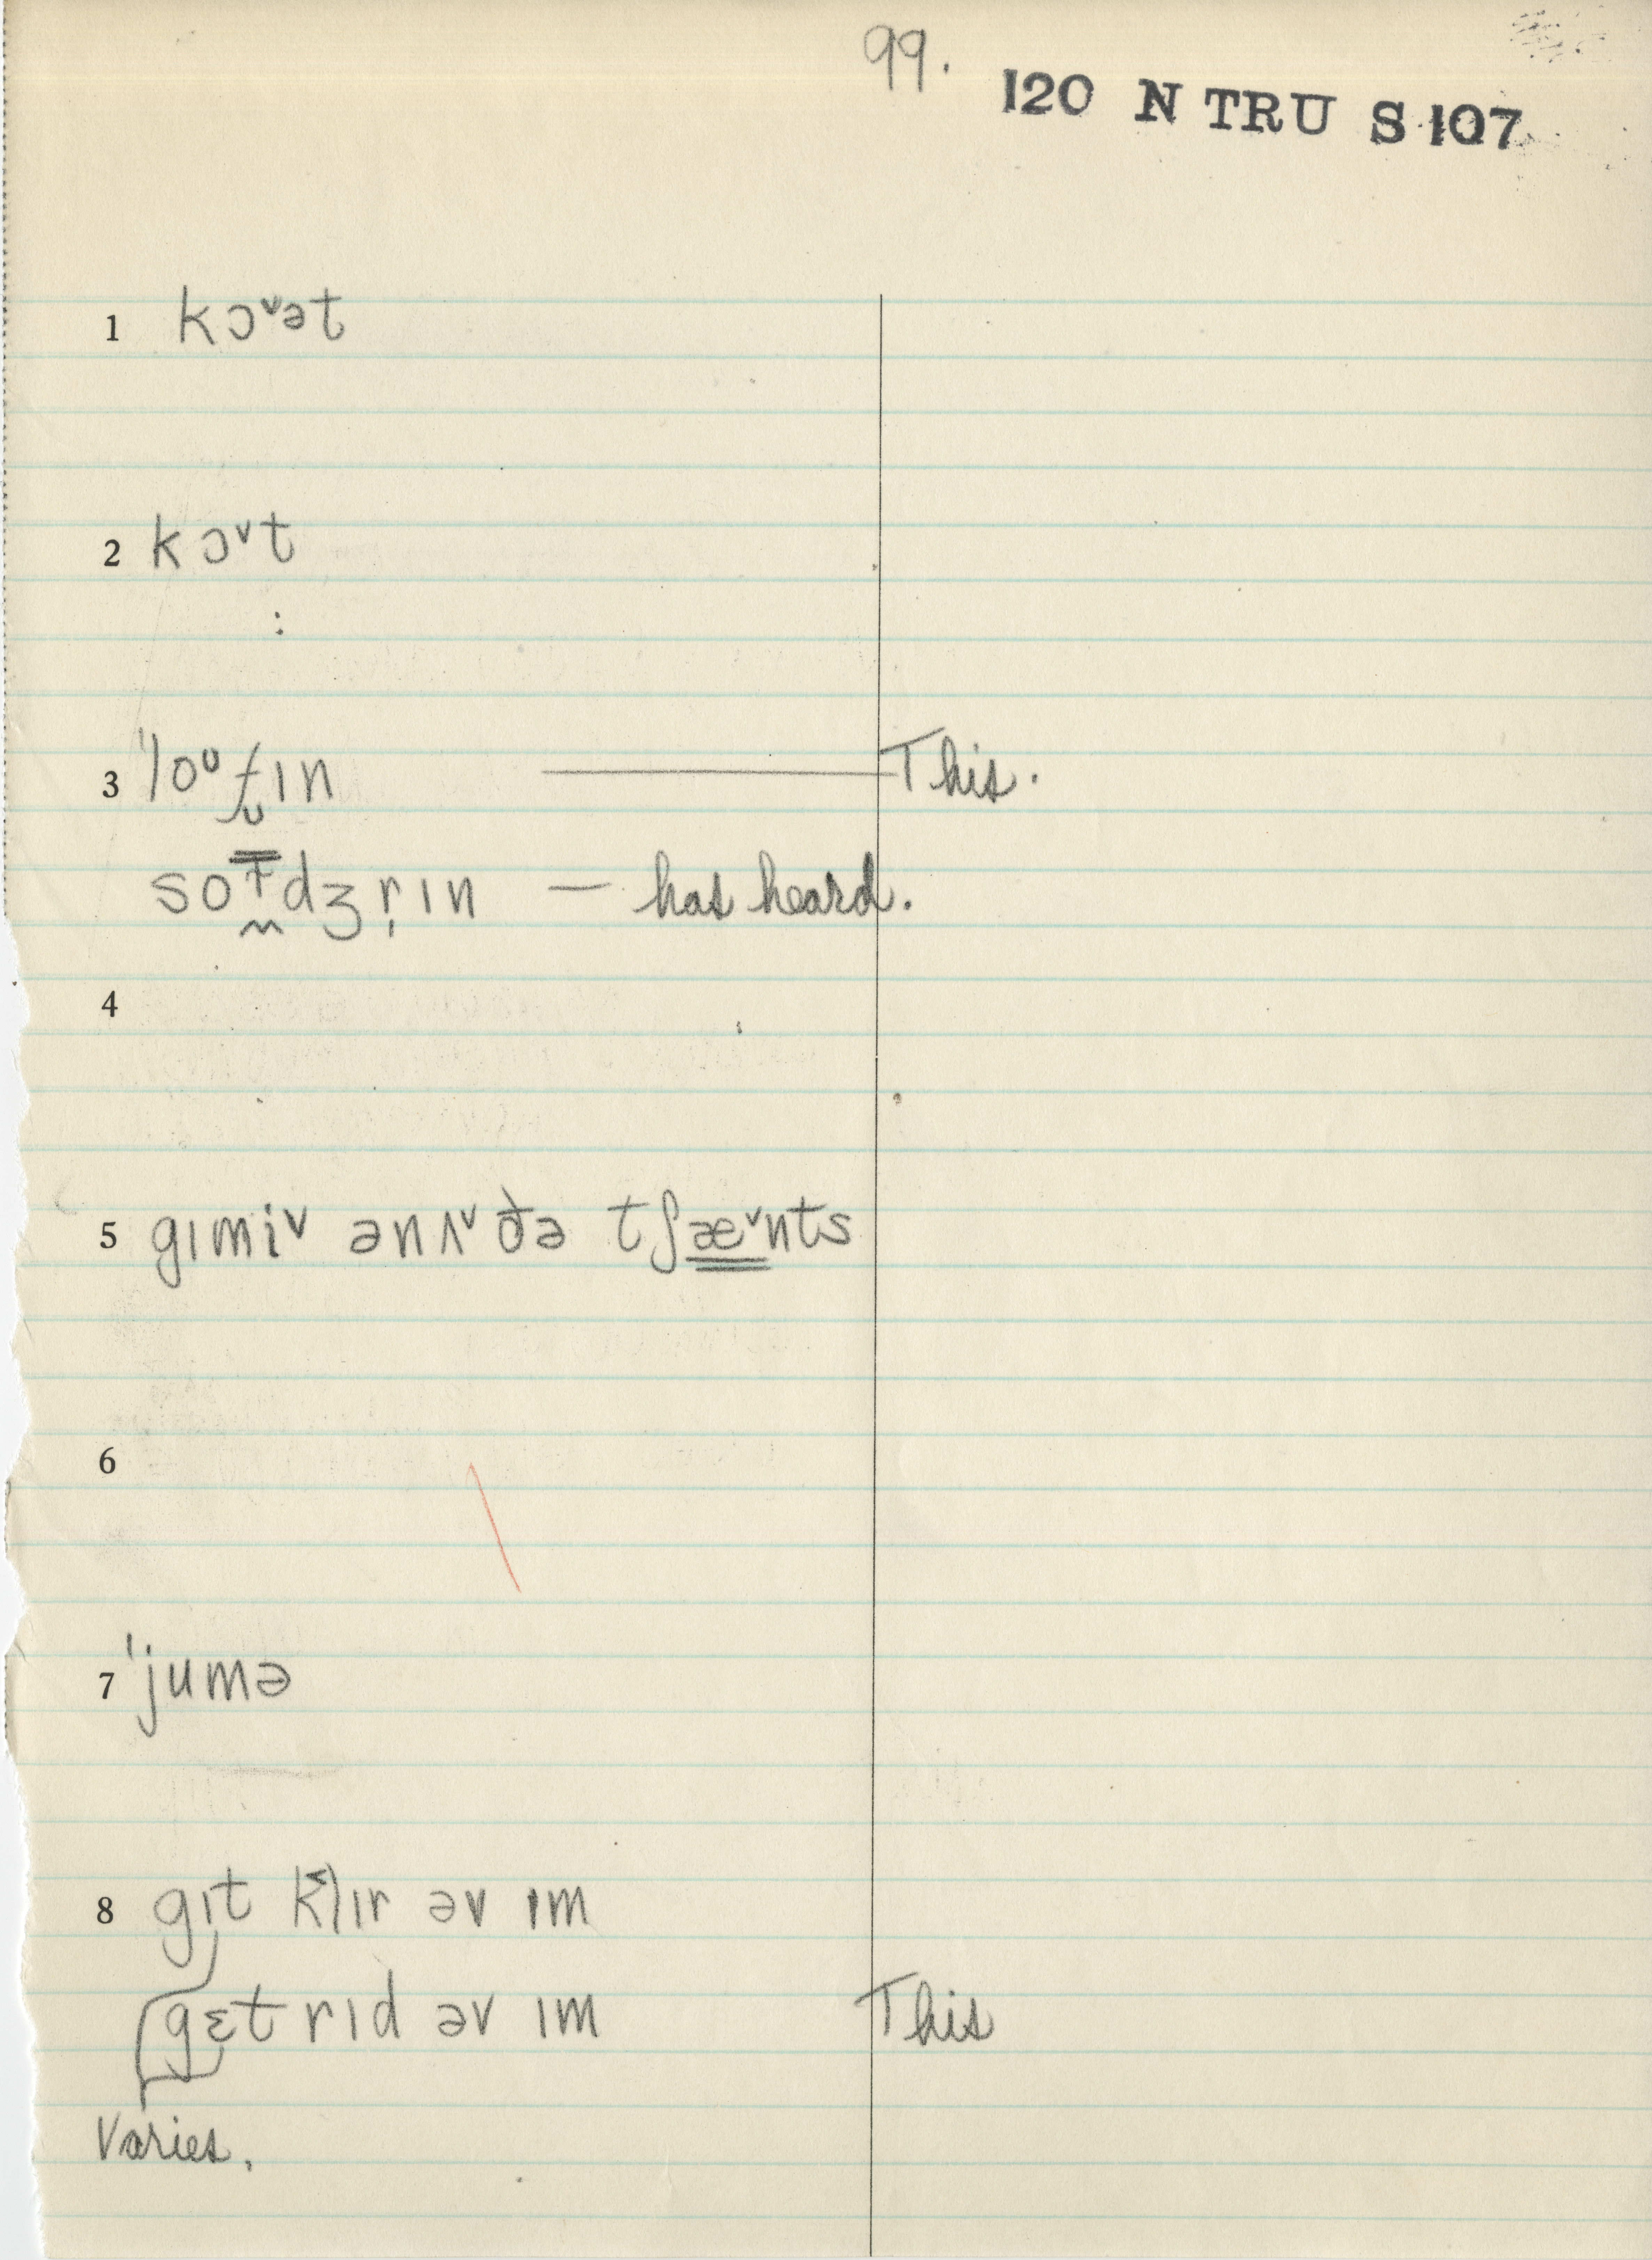 99.
120 N TRU S 107
1 kɔᵛət
2 kɔᵛt
:
3 ˈloᶷf̬ɪn This.
dʒr̩ɪn — has heard.
4
5 gɪmiᵛ ənʌᵛðə tʃæᵛnts
6
7 ˈjumə
8 gɪt k˂lɪr əv ɪm
gɛt rɪd əv ɪm This
Varies.